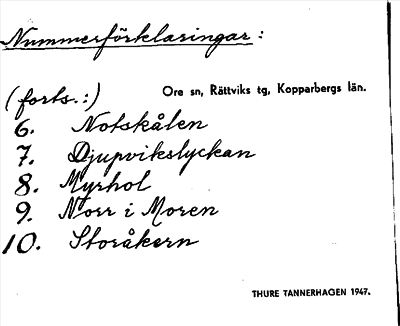 Nummerförklaringar:
Ore sn, Rättviks tg, Kopparbergs län.
(forts.:)
6. Notskålen
7. Djupvikslyckan
8. Myrhol
9. Norr i Moren
10. Storåkern
THURE TANNERHAGEN 1947.